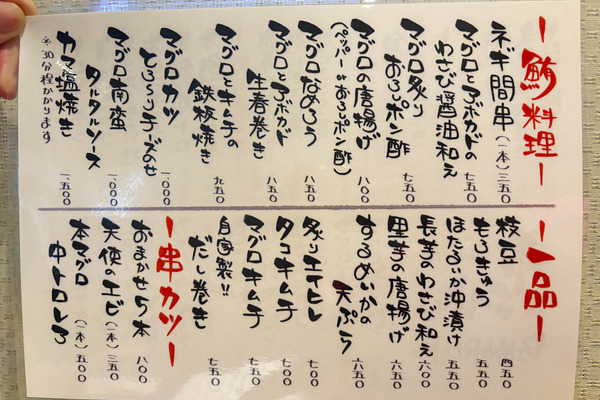 ー鮪料理ー
ネギ間串(一本)三五〇
マグロとアボカドの
わさび醤油和え
七五〇
マグロ炙り
おろしポン酢
七五〇
マグロの唐揚げ
(ペッパーorおろしポン酢)
八〇〇
マグロなめろう
八五〇
マグロとアボカド
生春巻き
八五〇
マグロとキムチの
鉄板焼き
九五〇
マグロカツ
とろ〜りチーズのせ
一,〇〇〇
マグロ南蛮
タルタルソース
一,〇〇〇
カマ塩焼き
一,五〇〇
※30分程かかります
ー一品ー
枝豆 四五〇
もろきゅう 五五〇
ほたるいか沖漬け 五五〇
長芋のわさび和え 六〇〇
里芋の唐揚げ 六五〇
するめいかの
天ぷら
六五〇
炙りエイヒレ 七〇〇
タコキムチ 七〇〇
マグロキムチ 七五〇
自家製!!
だし巻き
七五〇
ー串カツー
おまかせ5本 八〇〇
天使のエビ(一本)三五〇
本マグロ
中トロレア
(一本)五〇〇